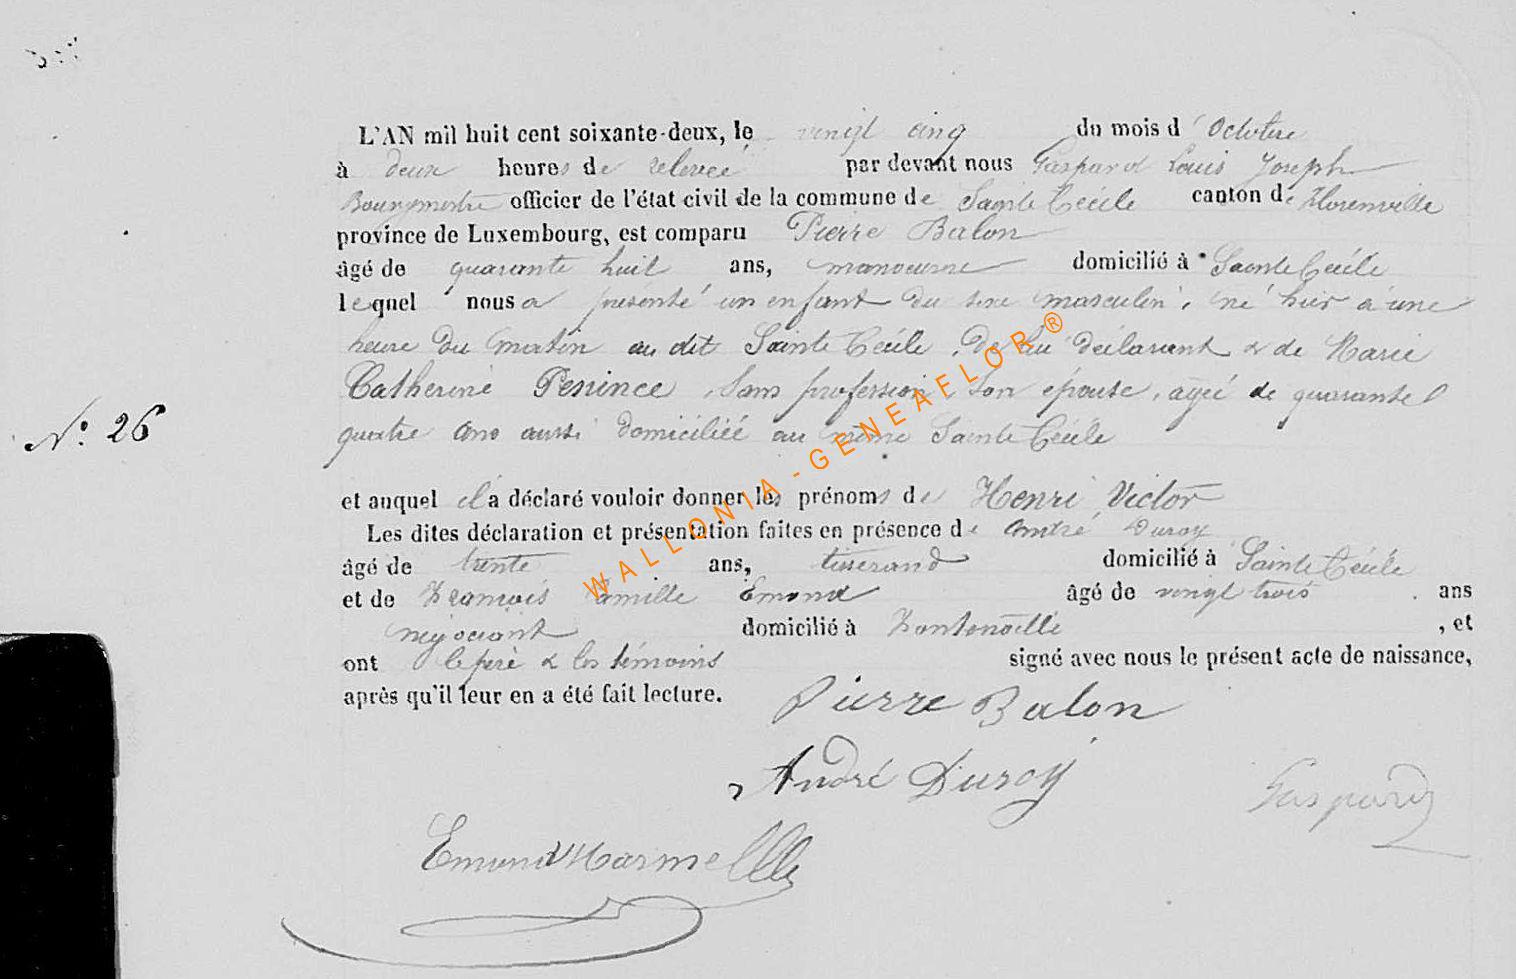 L'AN mil huit cent soixante-deux, le vingt cinq du mois d'Octobre
à deux heures de relevée par devant nous Gaspard Louis Joseph
Bourgmestre officier de l'état civil de la commune de Sainte Cécile canton de Florenville
province de Luxembourg, est comparu Pierre Balon
âgé de quarante huit ans, manoeuvre domicilié à Sainte Cécile
lequel nous a présenté un enfant du sexe masculin, né hier à une
heure du matin au dit Sainte Cécile, de lui déclarant & de Marie
Catherine Perrince, Sans profession, son épouse, agée de quarante
quatre ans aussi domiciliée au même Sainte Cécile
N° 26
et auquel il a déclaré vouloir donner les prénoms de Henri Victor
Les dites déclaration et présentation faites en présence de André Duroy
âgé de trente ans, tisserand domicilié à Sainte Cécile
et de François Camille Emond âgé de vingt trois ans
négociant domicilié à Fontenoille, et
ont le père & les témoins signé avec nous le présent acte de naissance,
après qu'il leur en a été fait lecture.
Pierre Balon
André Duroy
Gaspard
Emond
WALLONIA - GENEAELOR ®